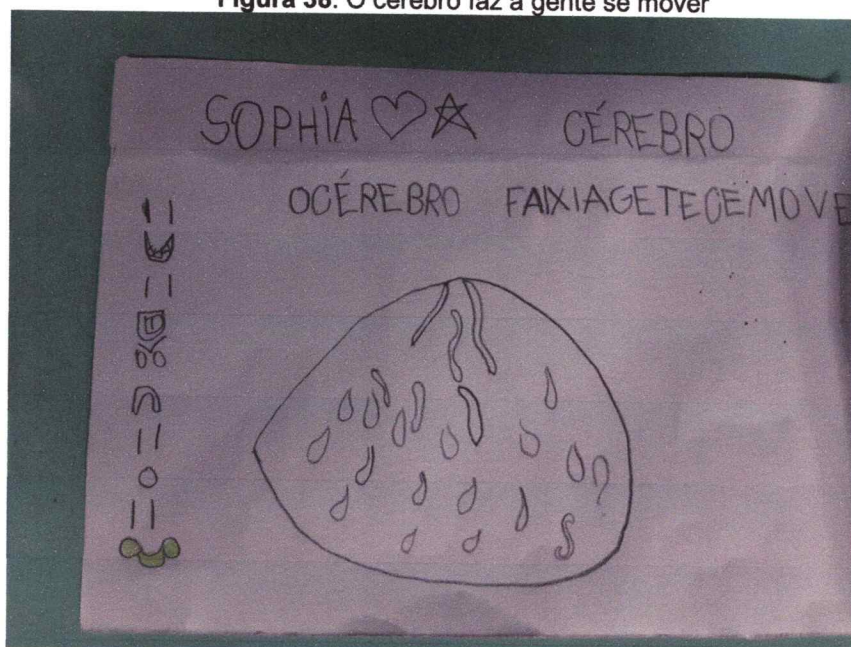 Figura 38: O cérebro faz a gente se mover
SOPHIA CÉREBRO
OCÉREBRO FAIXIAGETECEMOVE